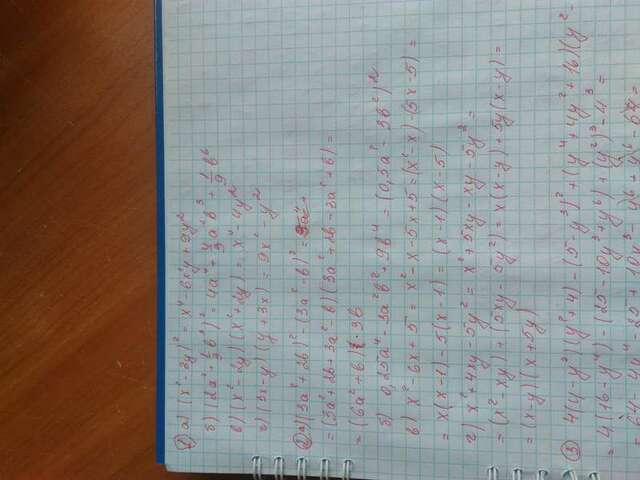 ① а) (x² - 3y)² = x⁴ - 6x²y + 9y²
б) (2a² + 1/3 b³)² = 4a⁴ + 4/3 a²b³ + 1/9 b⁶
в) (x² - 2y)(x² + 2y) = x⁴ - 4y²
г) (3x - y)(y + 3x) = 9x² - y²
② а) (3a² + 2b)² - (3a² - b)² =
= (3a² + 2b + 3a² - b)(3a² + 2b - 3a² + b) =
= (6a² + b) · 3b
б) 0,25a⁴ - 3a²b² + 9b⁴ = (0,5a² - 3b²)²
в) x² - 6x + 5 = x² - x - 5x + 5 = (x² - x) - (5x - 5) =
= x(x - 1) - 5(x - 1) = (x - 1)(x - 5)
г) x² + 4xy - 5y² = x² + 5xy - xy - 5y² =
= (x² - xy) + (5xy - 5y²) = x(x - y) + 5y(x - y) =
= (x - y)(x + 5y)
③ 4(4 - y²)(y² + 4) - (5 - y³)² + (y⁴ + 4y² + 16)(y² -
= 4(16 - y⁴) - (25 - 10y³ + y⁶) + (y²)³ - 4³ =